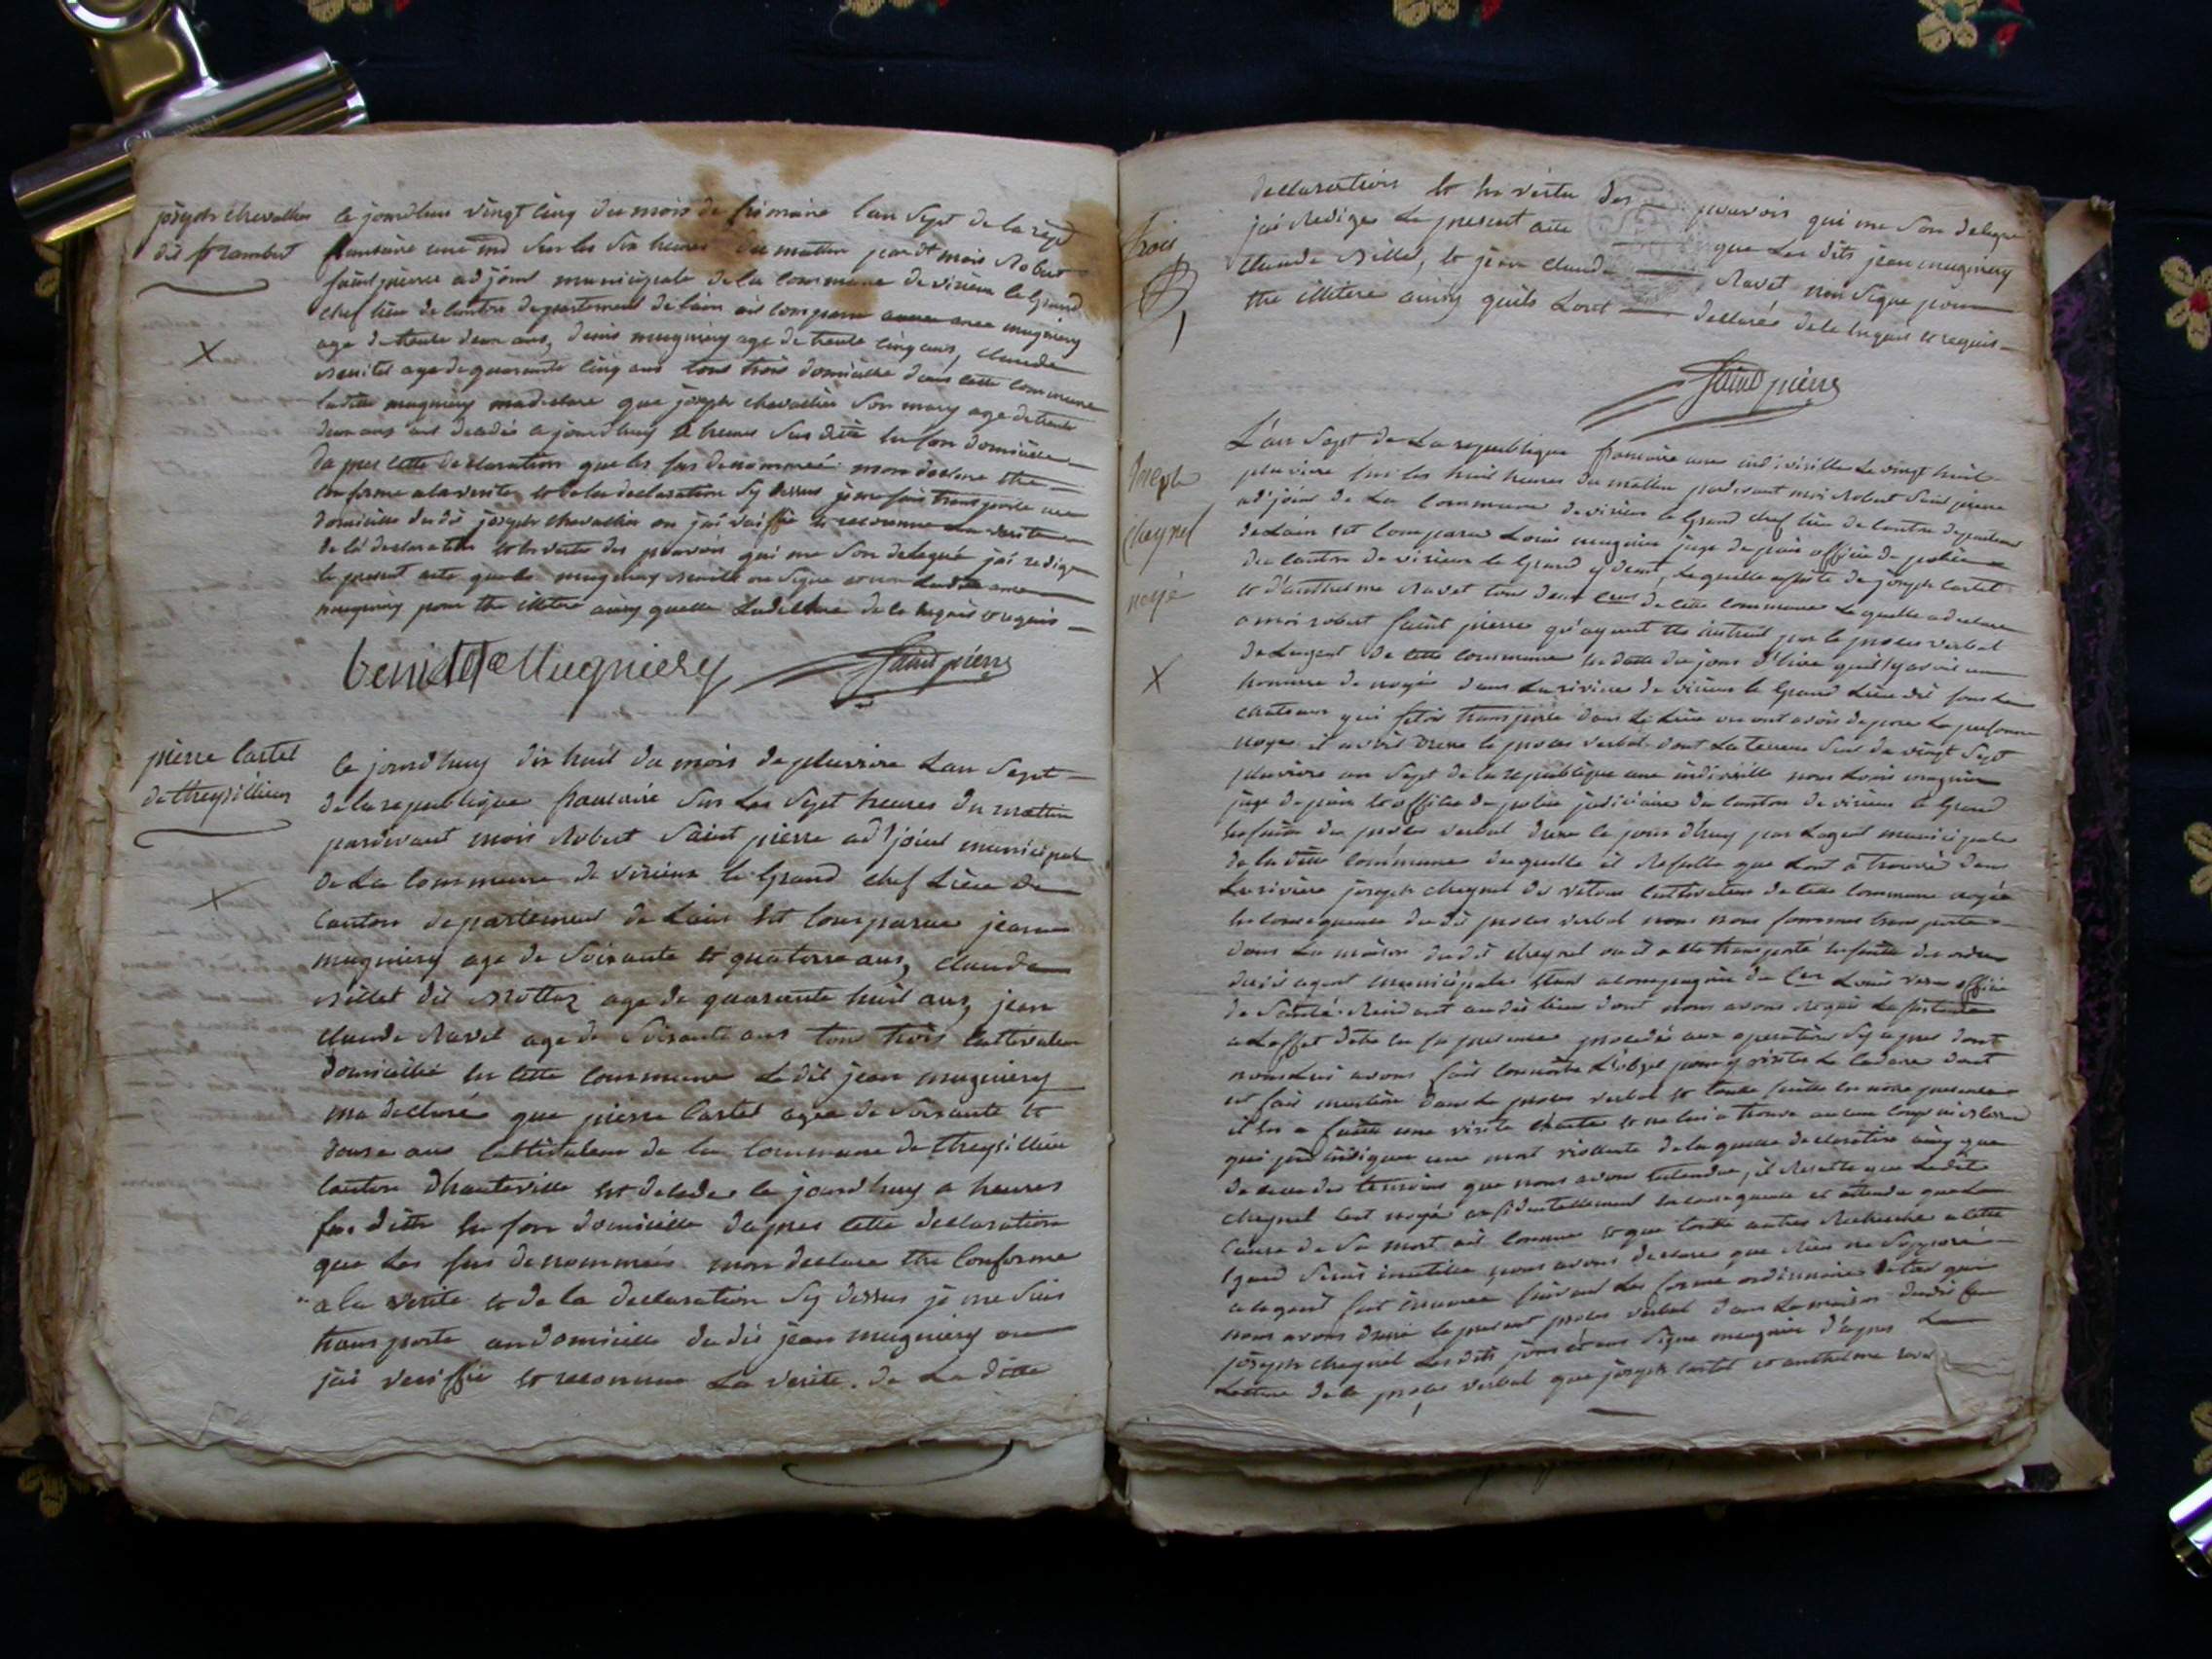 joseph chevallier
dit frambert
ce jourdhuy vingt cinq du mois de frimaire l'an sept de la rep
francaise une ind sur les six heures du mattin pardt mois Robert
saint pierre adjoint municipale de la commune de virieu le grand
chef lieu de canton departement de lain ait comparu anne mugniery
age de trente deux ans, denis mugniery age de trente cinq ans, claude
benitet age de quarante cinq ans tous trois domicilie dans cette commune
ladite mugniery ma declare que joseph chevallier son mary age de trente
deux ans est decedé ce jourdhuy a heures sus ditte en son domicille
dapres cette declaration que les sus denommeé mon declare etre
conforme a la verite et de la declaration sy dessus je me suis transporte au
domicille du dit joseph chevallier ou jai veriffie et reconnue la verite
de la declaration et en vertu des pouvoirs qui me son delegué jai redige
le present acte que les mugniery benitet on signe et non ladite anne
mugniery pour etre illetere ainsy quelle la declare de ce enquis et requis
benitet Mugniery Saint pierre
pierre Castel
de theysillieu
ce jourdhuy dix huit du mois de pluviose Lan Sept
de la republique francaise sur Les Sept heures du mattin
pardevant mois Robert Saint pierre ad'joint municipale
de La Commune de virieu le grand chef Lieu de
Canton departement de Lain est Comparue jean
mugniery age de Soixante et quatorze ans, claude
billet dit Mottaz age de quarante huit ans, jean
claude Ravet age de Soixante ans tous trois Cultivateur
domicillié en cette commune Ledit jean mugniery
ma declaré que pierre Castel agee de Soixante et
douze ans Cultivateur de la Commune de theysillieu
Canton d'hauteville est decedes ce jourdhuy a heures
sus ditte en son domicille dapres cette declaration
que Les sus denommés mon declare etre Conforme
a la verite et de la declaration Sy dessus je me suis
transporte au domicille du dit jean mugniery ou
jai veriffie et reconnue La verite de La ditte
trois
declaration et en vertu des pouvoirs qui me son delegue
jai Redige Le present acte que Les dits jean mugniery
Claude Billet, et jean Claude Ravet non signe pour
etre illetere ainsy quils Lont declarés de ce enquis et requis
Saint pierre
Joseph
cheynel
noyé
L'an Sept de La republique francaise une indivisible Le vingt huit
pluviose sur les huit heures du mattin pardevant moi Robert Saint pierre
ad'joint de La Commune de virieu le Grand chef lieu de Canton departem
de Lain est Comparu Louis mugnier juge de paix officie de police
du canton de virieu le Grand, Lequelle assiste de joseph Castel
et d'anthelme Ravet tous deux Cens de cette commune Lequelle a declare
a moi robert saint pierre qu'ayant ete instruit par le proces verbal
de Lagent de cette commune en datte du jours d'hier quil y avoit un
homme de noyé dans La riviere de virieu le Grand Lieu dit sous le
chateau qui setoit transporte dans Le Lieu ou ont avois depose La personne
noye il avoit dresse le proces verbal dont La teneur suit du vingt sept
pluviose an sept de la republique une indivisible nous Louis mugnier
juge de paix et officie de police judiciaire du canton de virieu le Grand
ensuite du proces verbal dresse ce jour d'huy par Lagent municipale
de la ditte commune duquelle il Resulte que Lont a trouvé dans
La riviere joseph cheynel cultivateur de cette commune noyé
en consequence du dit proces verbal nous nous sommes transporte
dans La maison du dit cheynel ou il a ete transporté ensuite des ordres
du dit agent municipale etant acompagnie du Cen Louis officie
de Santé Resident audit lieu dont nous avons requis Lassistance
a Leffet detre en sa presence procedé aux operations sy apres dont
nous Lui avons fait connoitre L'objet pour y visite Le cadavre dont
est fait mention dans Le proces verbal et toute suitte en notre presence
il en a faitte une visite exacte et ne lui a trouve aucun coup ni blessure
qui puis indiquer une mort viollente de laquelle declaration ainsy que
de celle des temoins que nous avons entendue, il Resulte que Ledit
cheynel cest noyé accidentellement en consequence et attendu que La
cause de sa mort est connue et que toutte autres Recherche a cette
egard serais inutille nous avons declare que Rien ne s'opposé
a ce quil soit inhumee suivant Les forme ordinnaire de tou quoi
nous avons dressé le present proces verbal dans La maison du dit feu
joseph cheynel Les dits jour et an signe mugnier d'apres La
Lecture de ce proces verbal que joseph Castel et anthelme ravet